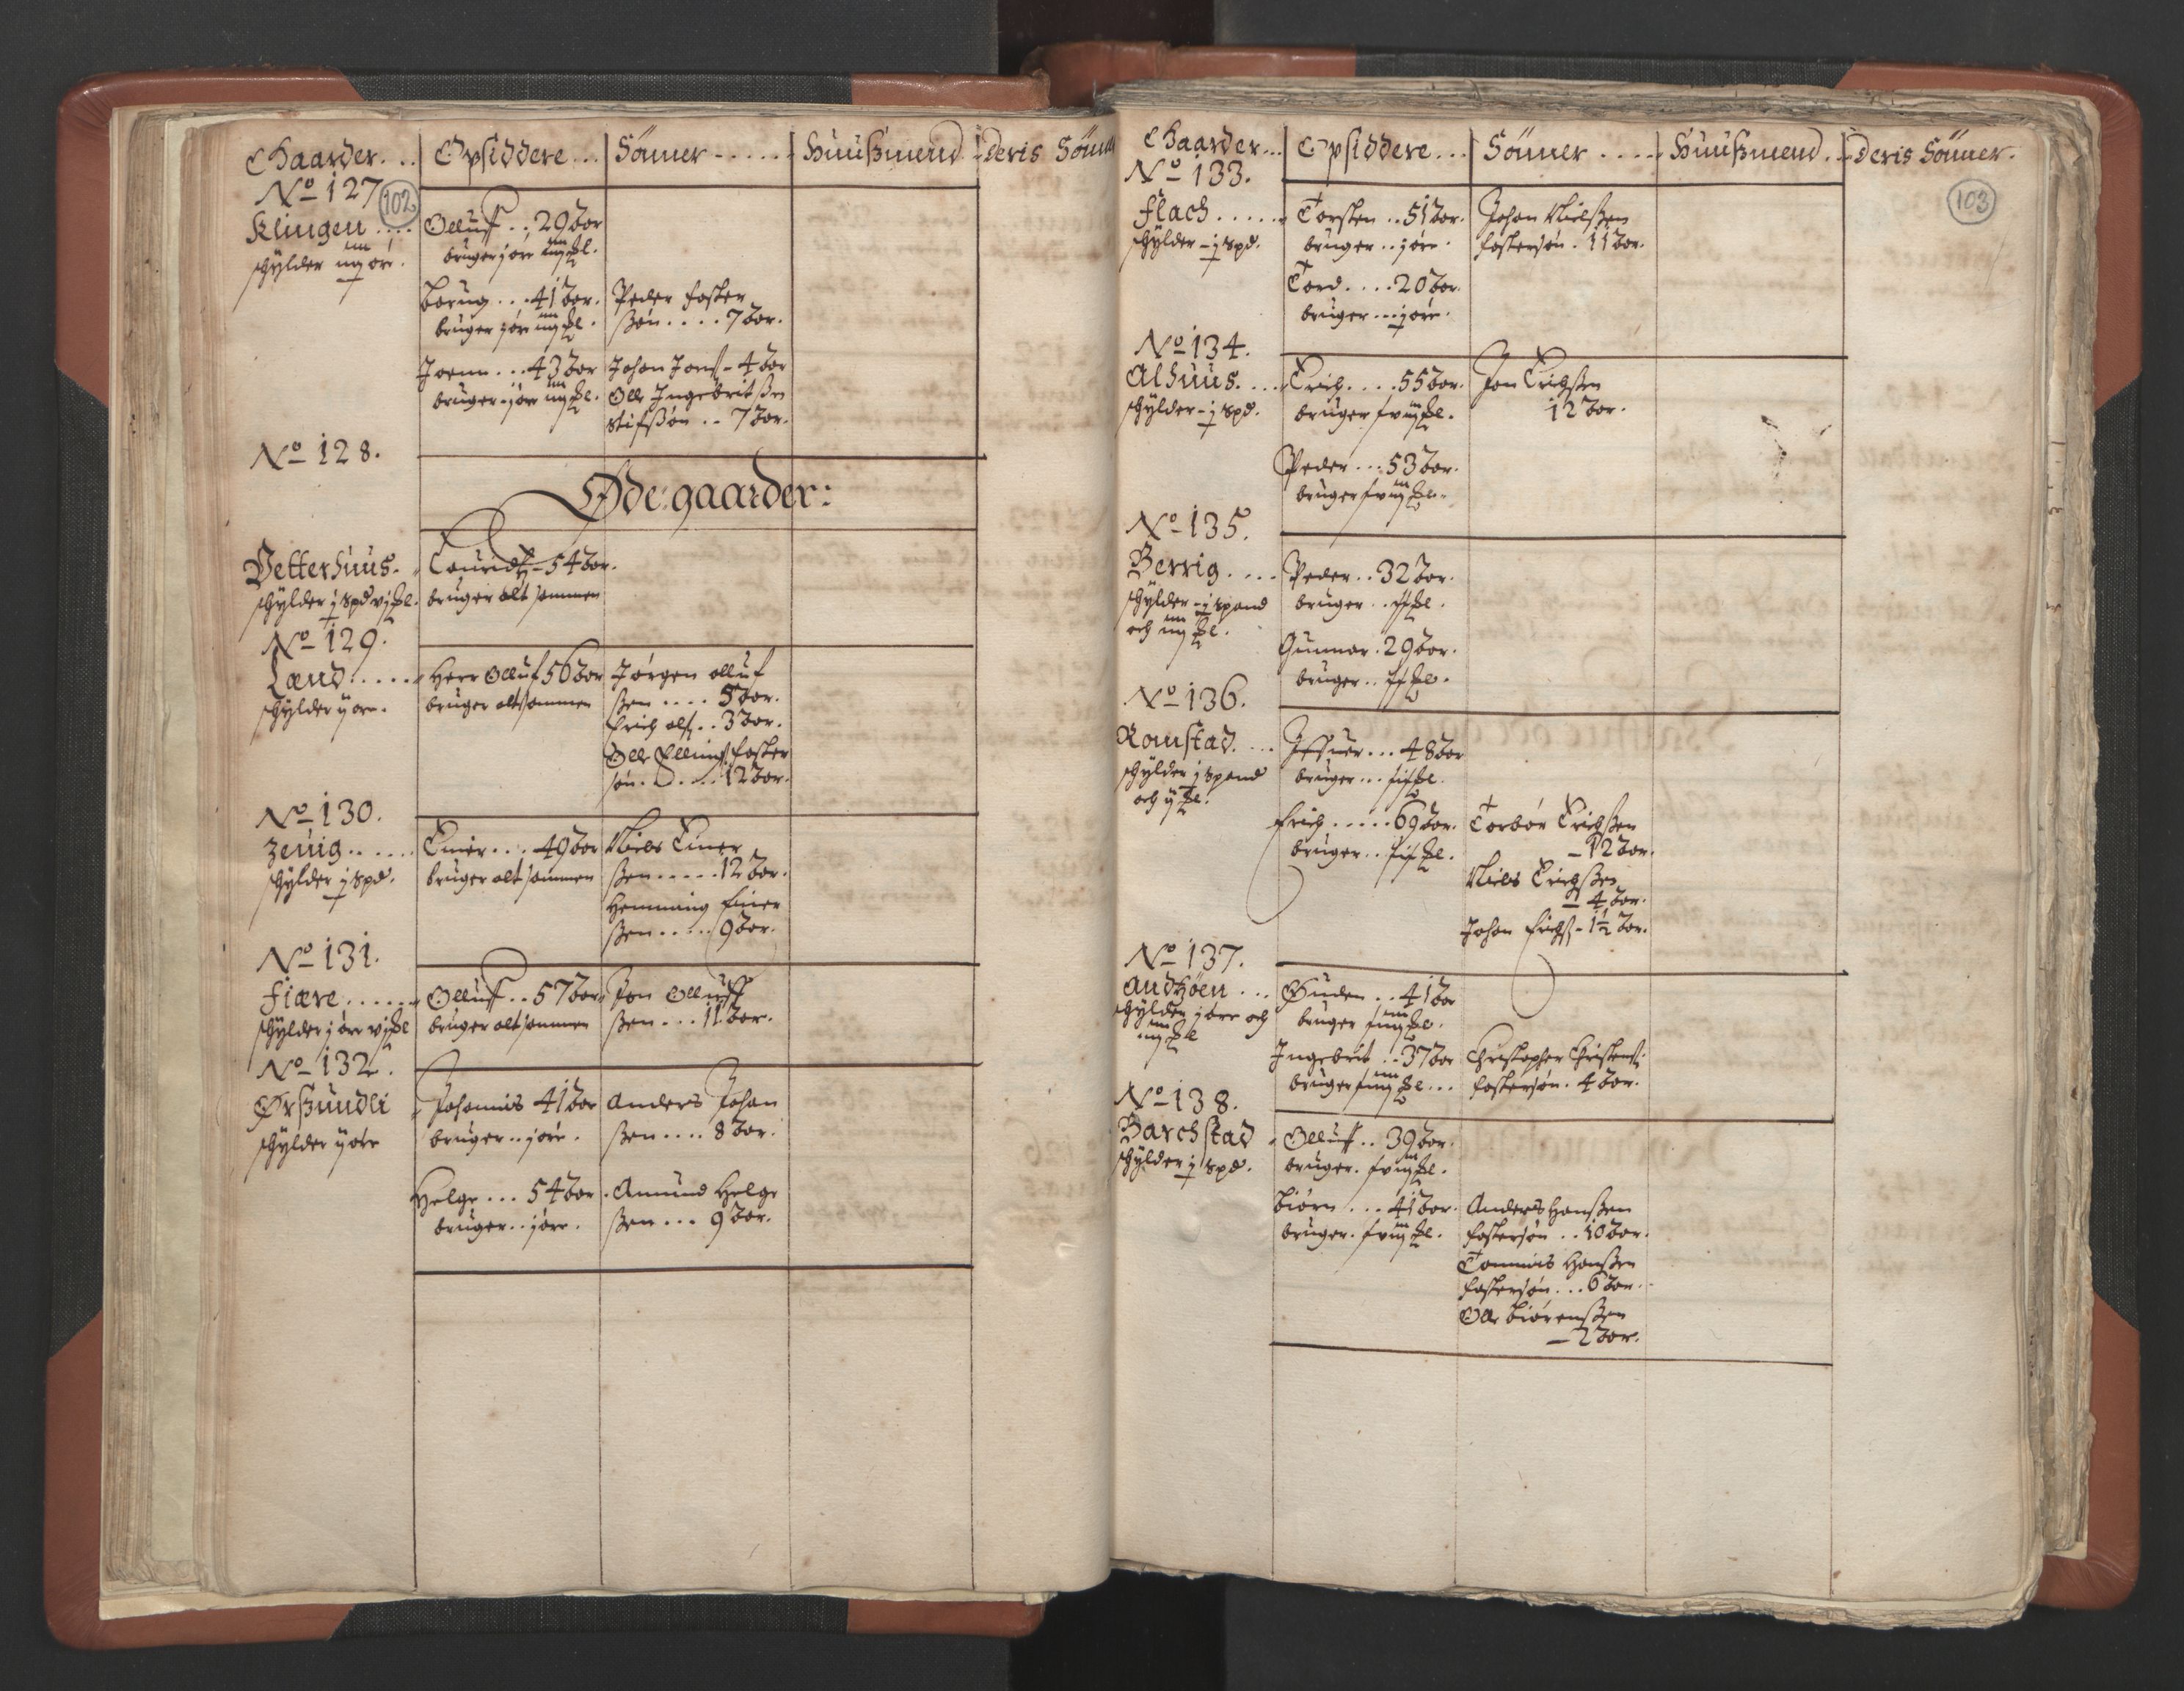 Gaarder... Opsiddere... Sönner...... Huußmend.. Deris Sönn
No 127
102
Klingen....
schylder iiij öre.
Olluff.. 29 åar
bruger j öre iiij ℔l.
Borug... 41 åar.
bruger j öre iiij ℔l.
Peder foster
ßön.... 7 åar.
Joenn... 43 åar
bruger j öre iiij ℔l.
Johan Jonß - 4 åar
Olle Ingebritßen
stifßön.. 7 åar.
No 128.
Øde:gaarder:
Vetterhuus.
schylder j spd vj ℔l.
Lauridtz - 54 åar.
bruger alt sammen
No 129.
Land.....
schylder ij öre.
Herr Olluf 56 åar
bruger alt sammen
Jörgen Olluf
ßen.... 5 åar.
Erich Olß.. 3 åar.
Olle Ellingß foster
sön...... 12 åar.
No 130.
Zeuig.....
schylder j spd.
Einer... 49 åar
bruger alt sammen
Niels Einer
ßen..... 12 åar.
Hemming Einer
ßen..... 9 åar.
No 131.
Fiære......
schylder j öre vj ℔l
Olluff.. 57 åar
bruger alt sammen
Jon Olluff
ßen... 11 åar.
No 132.
Ørßundli
schylder ij öre
Johannis 41 åar
bruger.. j öre.
Anders Johan
ßen.... 8 åar.
Helge... 54 åar.
bruger.. j öre.
Amund Helge
ßen... 9 åar.
Gaarder... Opsiddere... Sönner..... Huußmend.. Deris Sönner.
103
No 133.
Flach......
schylder - j spd.
Torsten.. 51 åar.
bruger.. j öre.
Johan Nielßen
fostersön. 11 åar.
Tord.... 20 åar.
bruger... j öre.
No 134.
Alhuus....
schylder - j spd.
Erich.... 55 åar.
bruger
Jon Erichßen
12 åar.
Peder... 53 åar.
bruger
No 135.
Berrig....
schylder - j spand
och iiij ℔l.
Peder.. 32 åar.
bruger..
Gunnar. 29 åar.
bruger..
No 136.
Romstad....
schylder j spand
och ij ℔l.
48 åar
bruger...
Erich..... 69 åar.
bruger..
Torbör Erichßen
- 12 åar.
Niels Erichßen
- 4 åar.
Johan Erichß - 1½ åar.
No 137.
Audtzöen...
schylder j öre och
iiij ℔l
Guden.. 41 åar
bruger
Ingebrit.. 37 åar
bruger
Christopher Christenß.
fostersön. 4 åar.
No 138.
Barchstad
schylder j spd.
Olluff.. 39 åar.
bruger.
Biörn... 41 åar.
bruger.
Anders Hanßen
fostersön.. 10 åar.
Tommis Hanßen
fostersön... 6 åar.
Olle Biörenßen
- 2 åar.